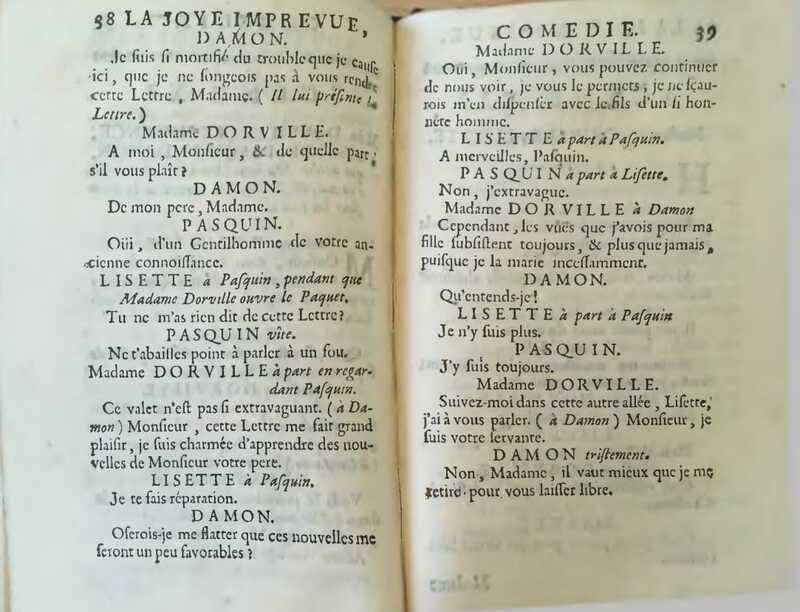 38 LA JOYE IMPREVUE,
DAMON.
Je ſuis ſi mortifié du trouble que je cauſe
ici, que je ne ſongeois pas à vous rendre
cette Lettre, Madame. (Il lui préſente la
Lettre.)
Madame DORVILLE.
A moi, Monſieur, & de quelle part,
s'il vous plaît?
DAMON.
De mon pere, Madame.
PASQUIN.
Oüi, d'un Gentilhomme de votre an-
cienne connoiſſance.
LISETTE à Paſquin, pendant que
Madame Dorville ouvre le Paquet.
Tu ne m'as rien dit de cette Lettre?
PASQUIN vîte.
Ne t'abaiſſes point à parler à un fou.
Madame DORVILLE à part en regar-
dant Paſquin.
Ce valet n'eſt pas ſi extravaguant. (à Da-
mon) Monſieur, cette Lettre me fait grand
plaiſir, je ſuis charmée d'apprendre des nou-
velles de Monſieur votre pere.
LISETTE à Paſquin.
Je te fais réparation.
DAMON.
Oſerois-je me flatter que ces nouvelles me
ſeront un peu favorables?
COMEDIE. 39
Madame DORVILLE.
Oui, Monſieur, vous pouvez continuer
de nous voir, je vous le permets, je ne ſçau-
rois m'en diſpenſer avec le fils d'un ſi hon-
nête homme.
LISETTE à part à Paſquin.
A merveilles, Paſquin.
PASQUIN à part à Liſette.
Non, j'extravague.
Madame DORVILLE à Damon
Cependant, les vûës que j'avois pour ma
fille ſubſiſtent toujours, & plus que jamais,
puiſque je la marie inceſſamment.
DAMON.
Qu'entends-je!
LISETTE à part à Paſquin
Je n'y ſuis plus.
PASQUIN.
J'y ſuis toujours.
Madame DORVILLE.
Suivez-moi dans cette autre allée, Liſette,
j'ai à vous parler. (à Damon) Monſieur, je
ſuis votre ſervante.
DAMON triſtement.
Non, Madame, il vaut mieux que je me
retire pour vous laiſſer libre.